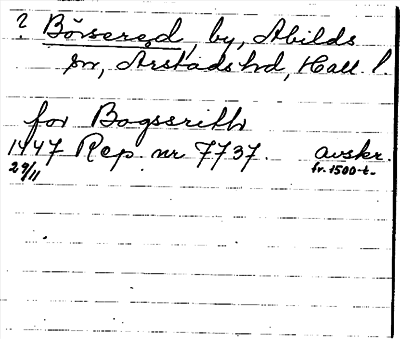 ? Börsered, by, Abilds
sn, Årstads hd, Hall. l.
for Bogssrithr
1447 Rep. nr 7737. avskr.
29/11 fr. 1500-t.